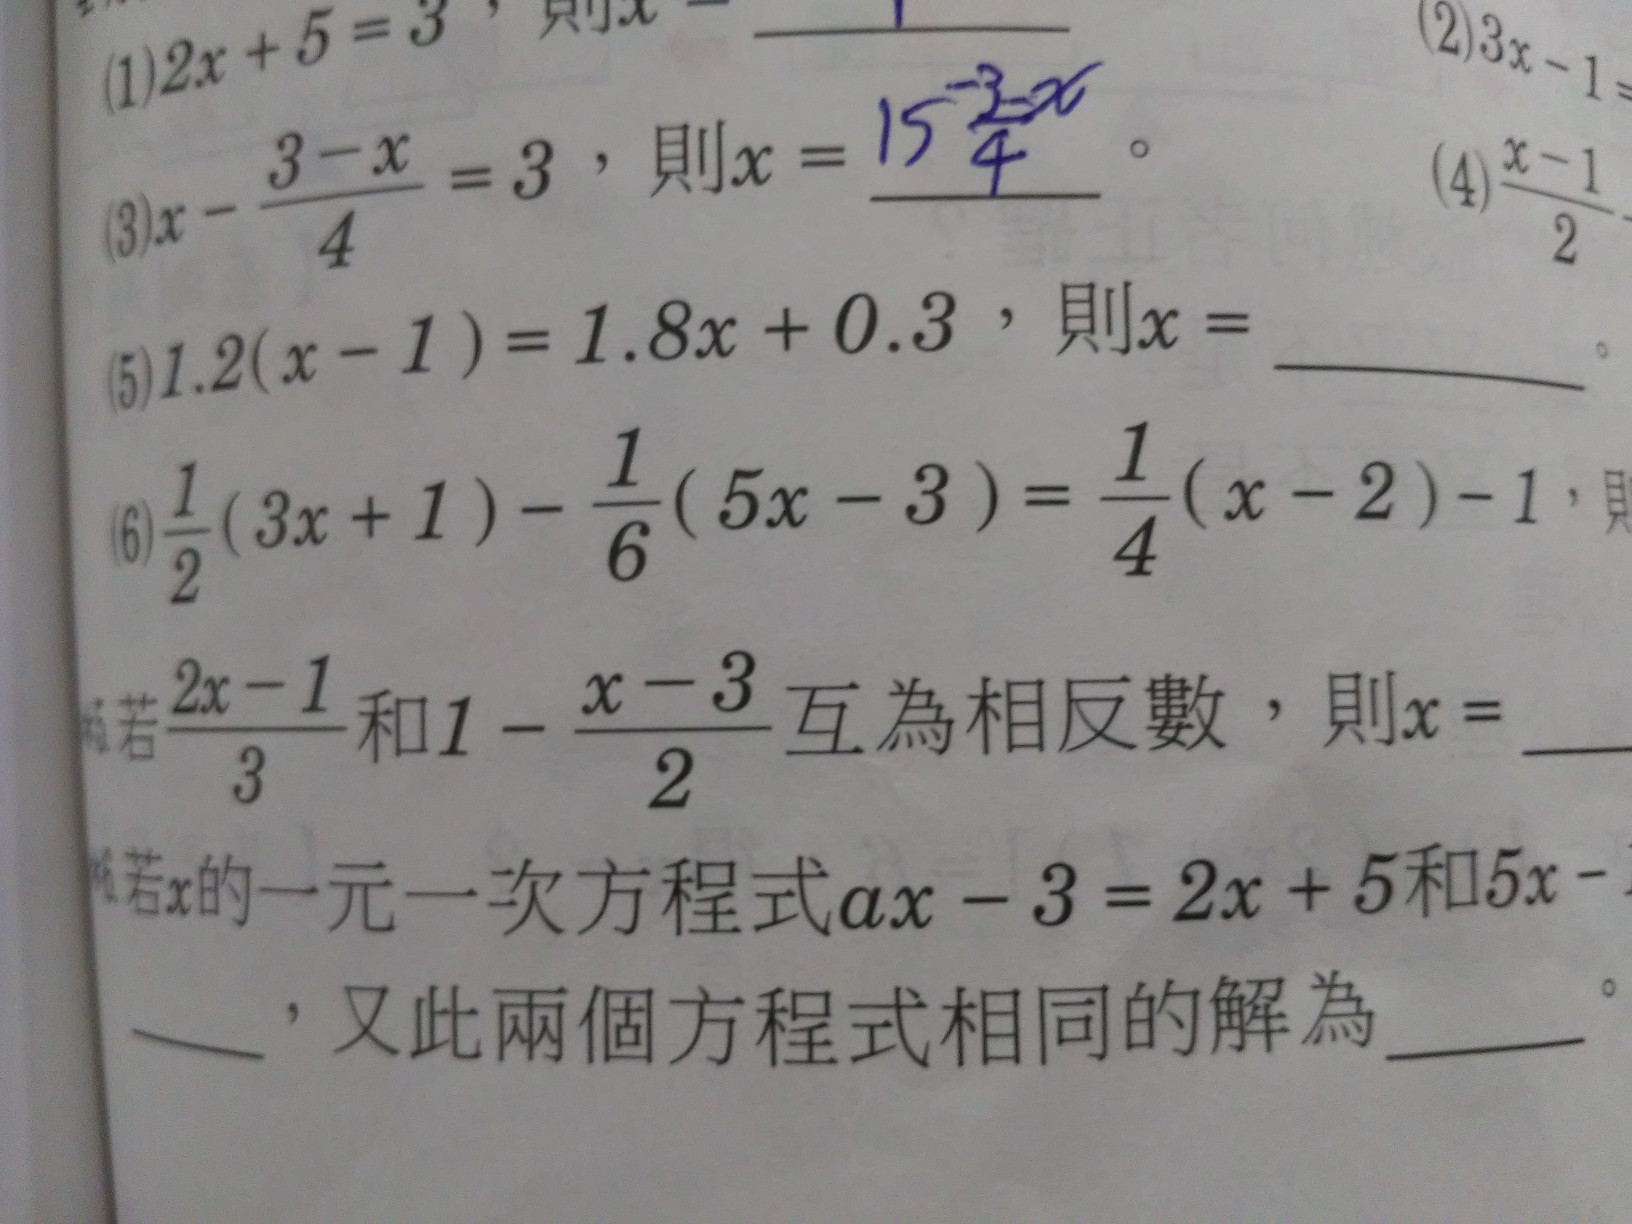 (1)2x + 5 = 3，則x =
(2)3x - 1 =
(3)x - \frac{3 - x}{4} = 3，則x = 15 \frac{-3-x}{4}。
(4)\frac{x - 1}{2} -
(5)1.2( x - 1 ) = 1.8x + 0.3，則x = ＿＿＿。
(6)\frac{1}{2}( 3x + 1 ) - \frac{1}{6}( 5x - 3 ) = \frac{1}{4}( x - 2 ) - 1，則
若\frac{2x - 1}{3}和1 - \frac{x - 3}{2}互為相反數，則x = ＿＿
若x的一元一次方程式ax - 3 = 2x + 5和5x -
＿＿，又此兩個方程式相同的解為＿＿＿。